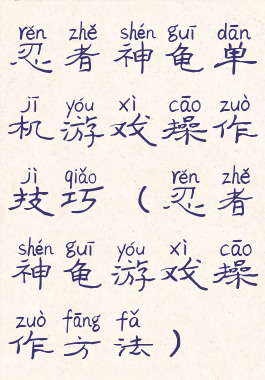 rěn zhě shén guī dān
忍者神龟单
jī yóu xì cāo zuò
机游戏操作
jì qiǎo rěn zhě
技巧（忍者
shén guī yóu xì cāo
神龟游戏操
zuò fāng fǎ
作方法）